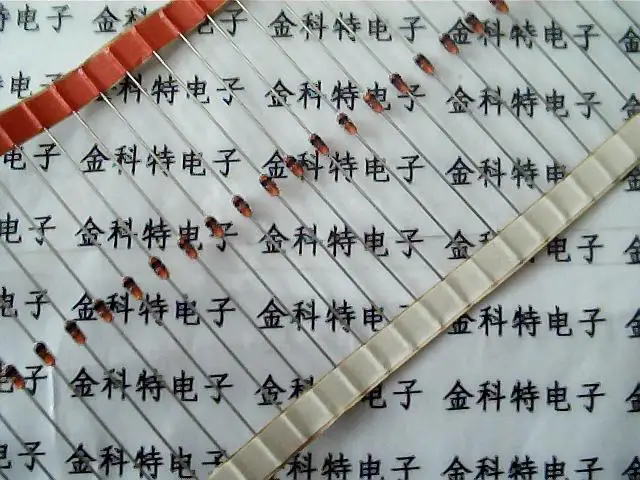 特电子 金科特电子 金科特电子 金科特电子
特电子 科特电子 金科特电子 金科特电子
电子 金科特电子 金科特电子 金科特电
电子 金科特电子 金科特电子 金 电子
电子 金科特电子 金科特电 金科特电子
子 金科特电子 金科 电子 金科特电子
电子 金科特电 科特电子 金科特电子